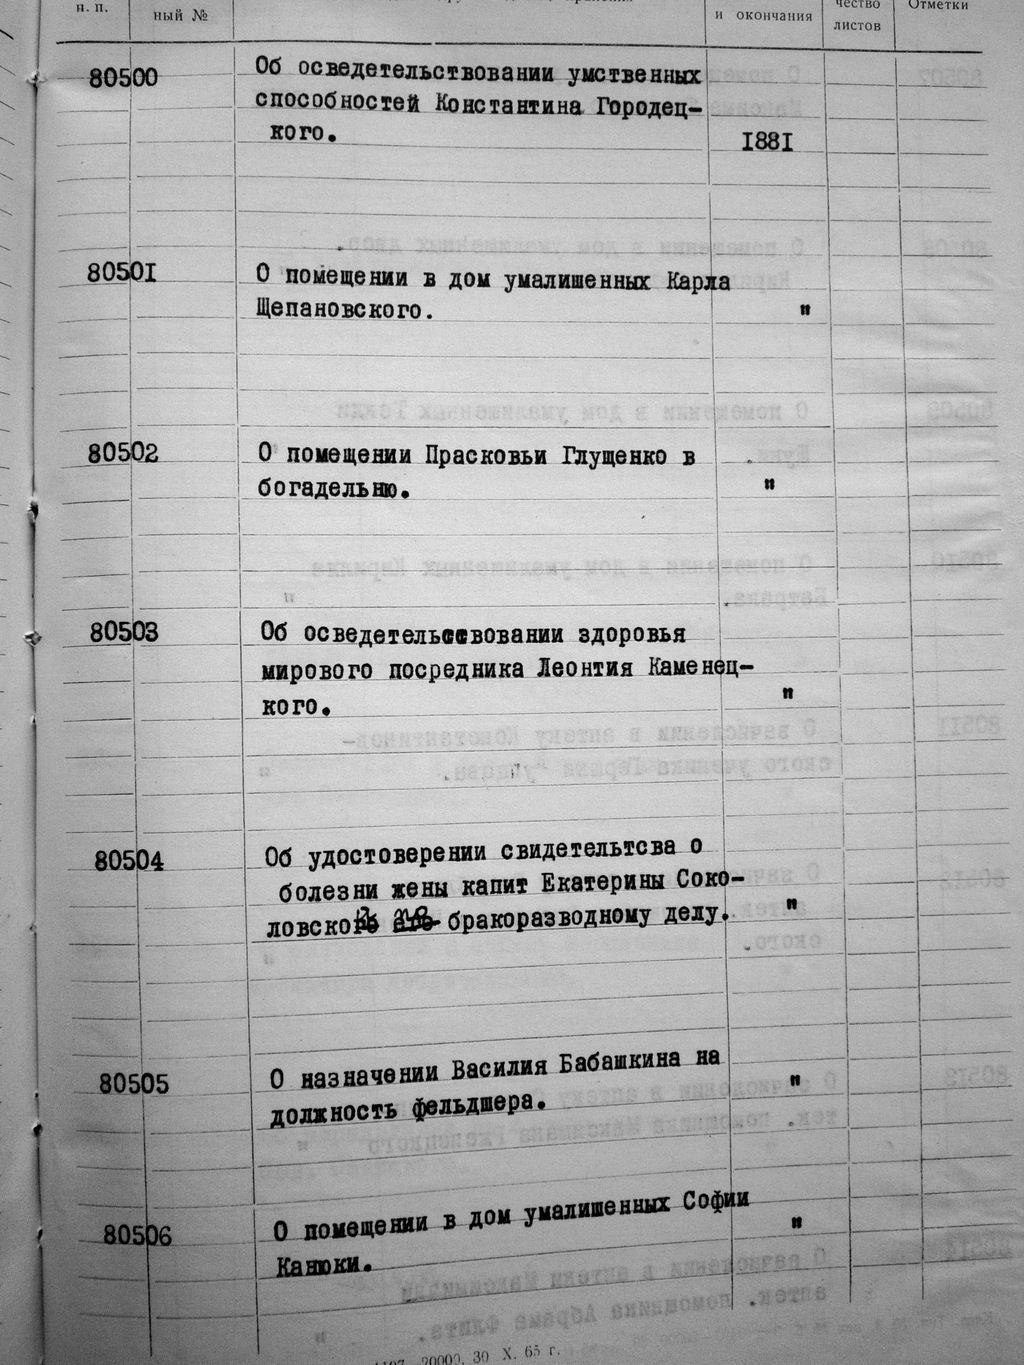 п. п.
ный №
и окончания
чество
листов
Отметки
80500
Об осведетельствовании умственных
способностей Константина Городец-
кого.
I88I
8050I
О помещении в дом умалишенных Карла
Щепановского.
"
80502
О помещении Прасковьи Глущенко в
богадельню.
"
80503
Об осведетельсвовании здоровья
мирового посредника Леонтия Каменец-
кого.
"
80504
Об удостоверении свидетельтсва о
болезни жены капит Екатерины Соко-
ловской бракоразводному делу.
"
80505
О назначении Василия Бабашкина на
должность фельдшера.
"
80506
О помещении в дом умалишенных Софии
Канюки.
"
20000. 30 X. 65 г.